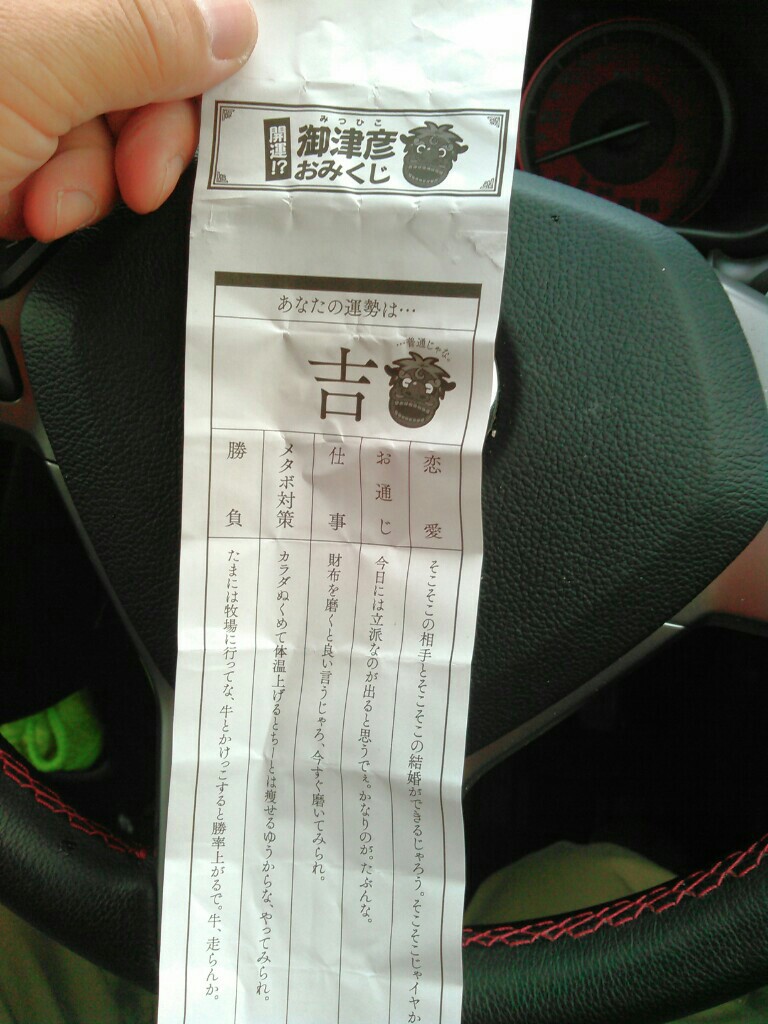 開運!?
みつひこ
御津彦
おみくじ
あなたの運勢は…
吉
…普通じゃな。
恋愛
そこそこの相手とそこそこの結婚ができるじゃろう。そこそこじゃイヤか
お通じ
今日には立派なのが出ると思うでぇ。かなりのが。たぶんな。
仕事
財布を磨くと良い言うじゃろ、今すぐ磨いてみられ。
メタボ対策
カラダぬくめて体温上げるとちーとは痩せるゆうからな、やってみられ。
勝負
たまには牧場に行ってな、牛とかけっこすると勝率上がるで。牛、走らんか。